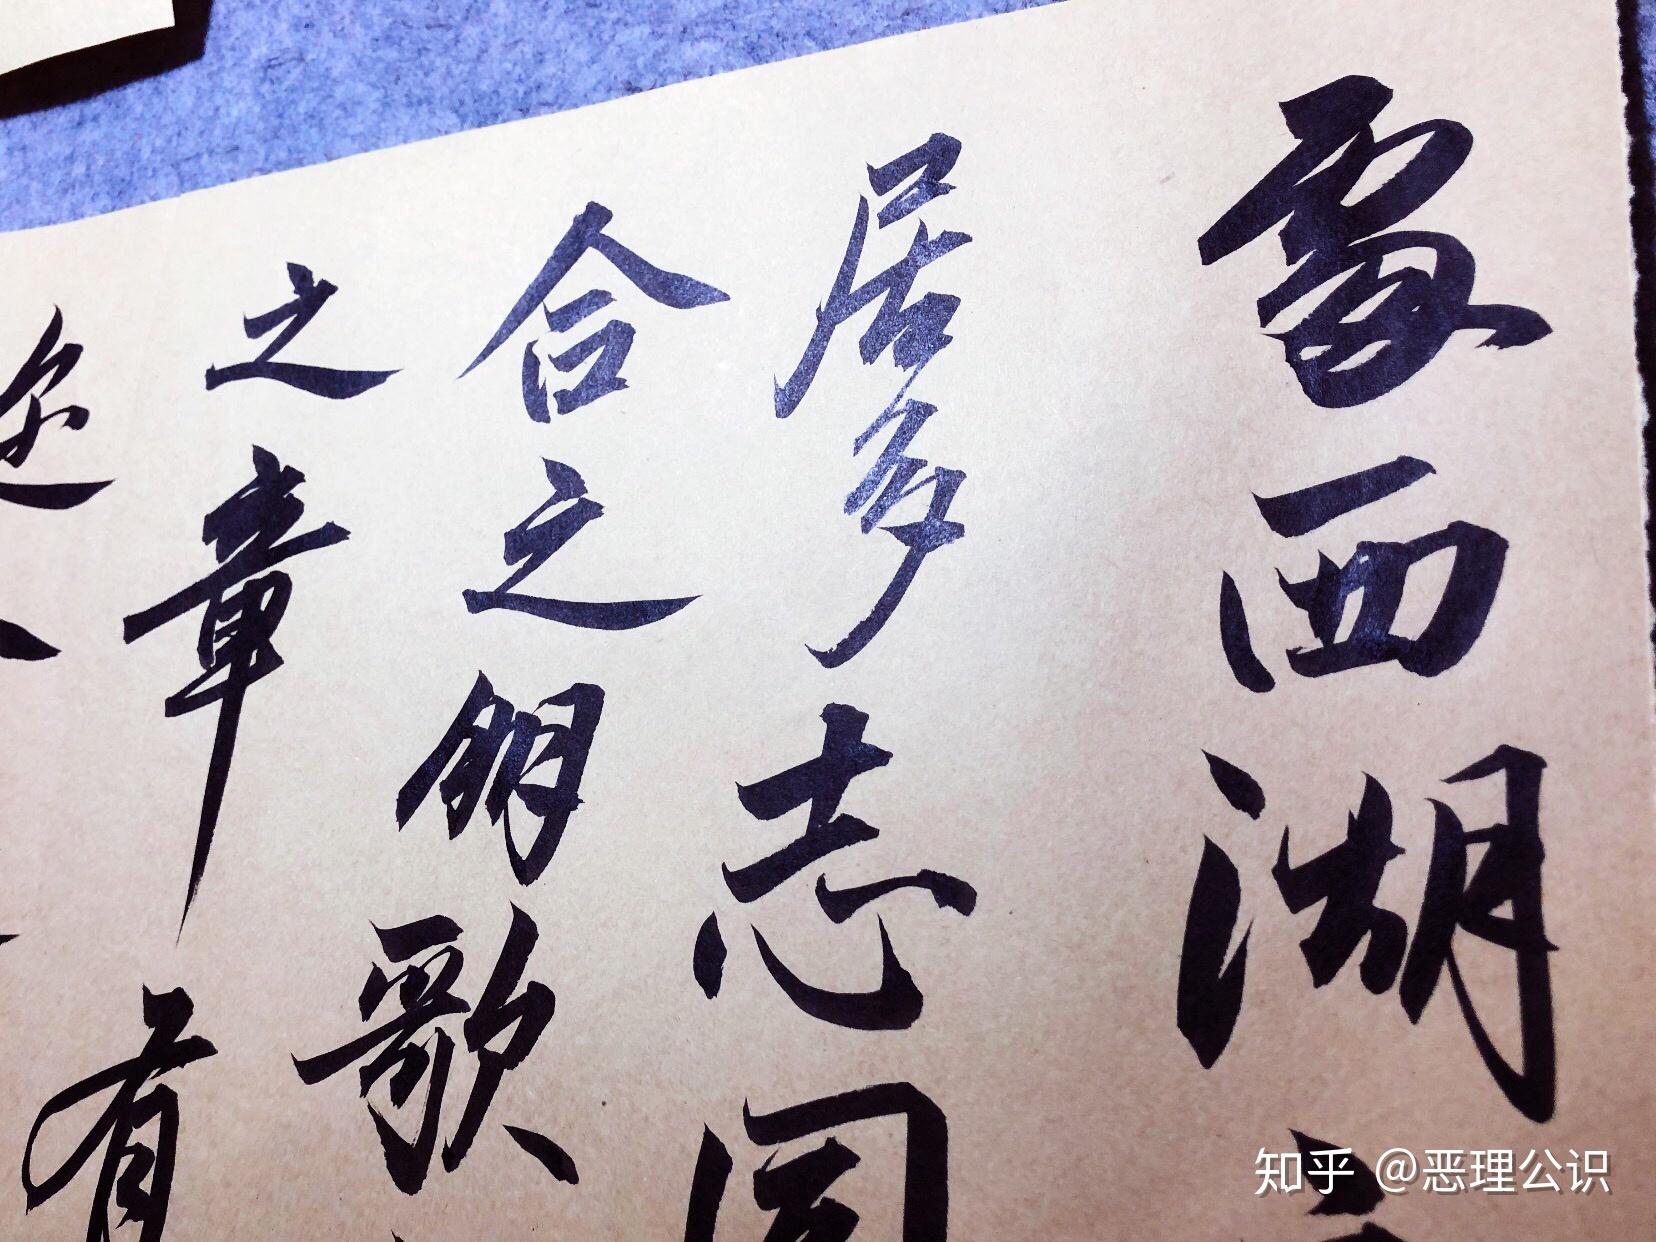 西湖
居多志同
合之朋歌
之章有
知乎 @恶理公识